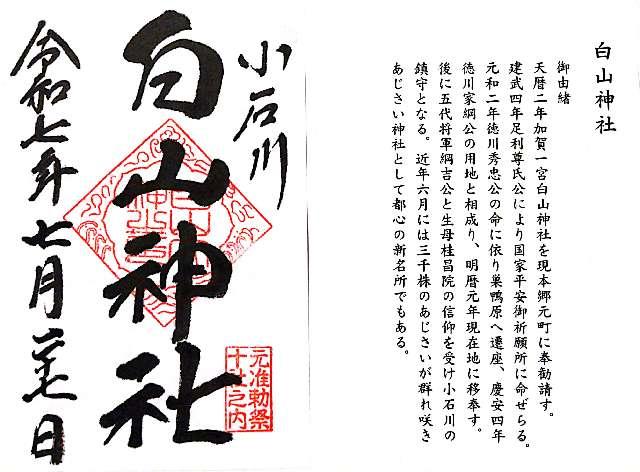 白山神社
御由緒
天暦二年加賀一宮白山神社を現本郷元町に奉勧請す。
建武四年足利尊氏公により国家平安御祈願所に命ぜらる。
元和二年徳川秀忠公の命に依り巣鴨原へ遷座、慶安四年
徳川家綱公の用地と相成り、明暦元年現在地に移奉す。
後に五代将軍綱吉公と生母桂昌院の信仰を受け小石川の
鎮守となる。近年六月には三千株のあじさいが群れ咲き
あじさい神社として都心の新名所でもある。
小石川
白山神社
元准勅祭
十社之内
令和七年七月二十七日